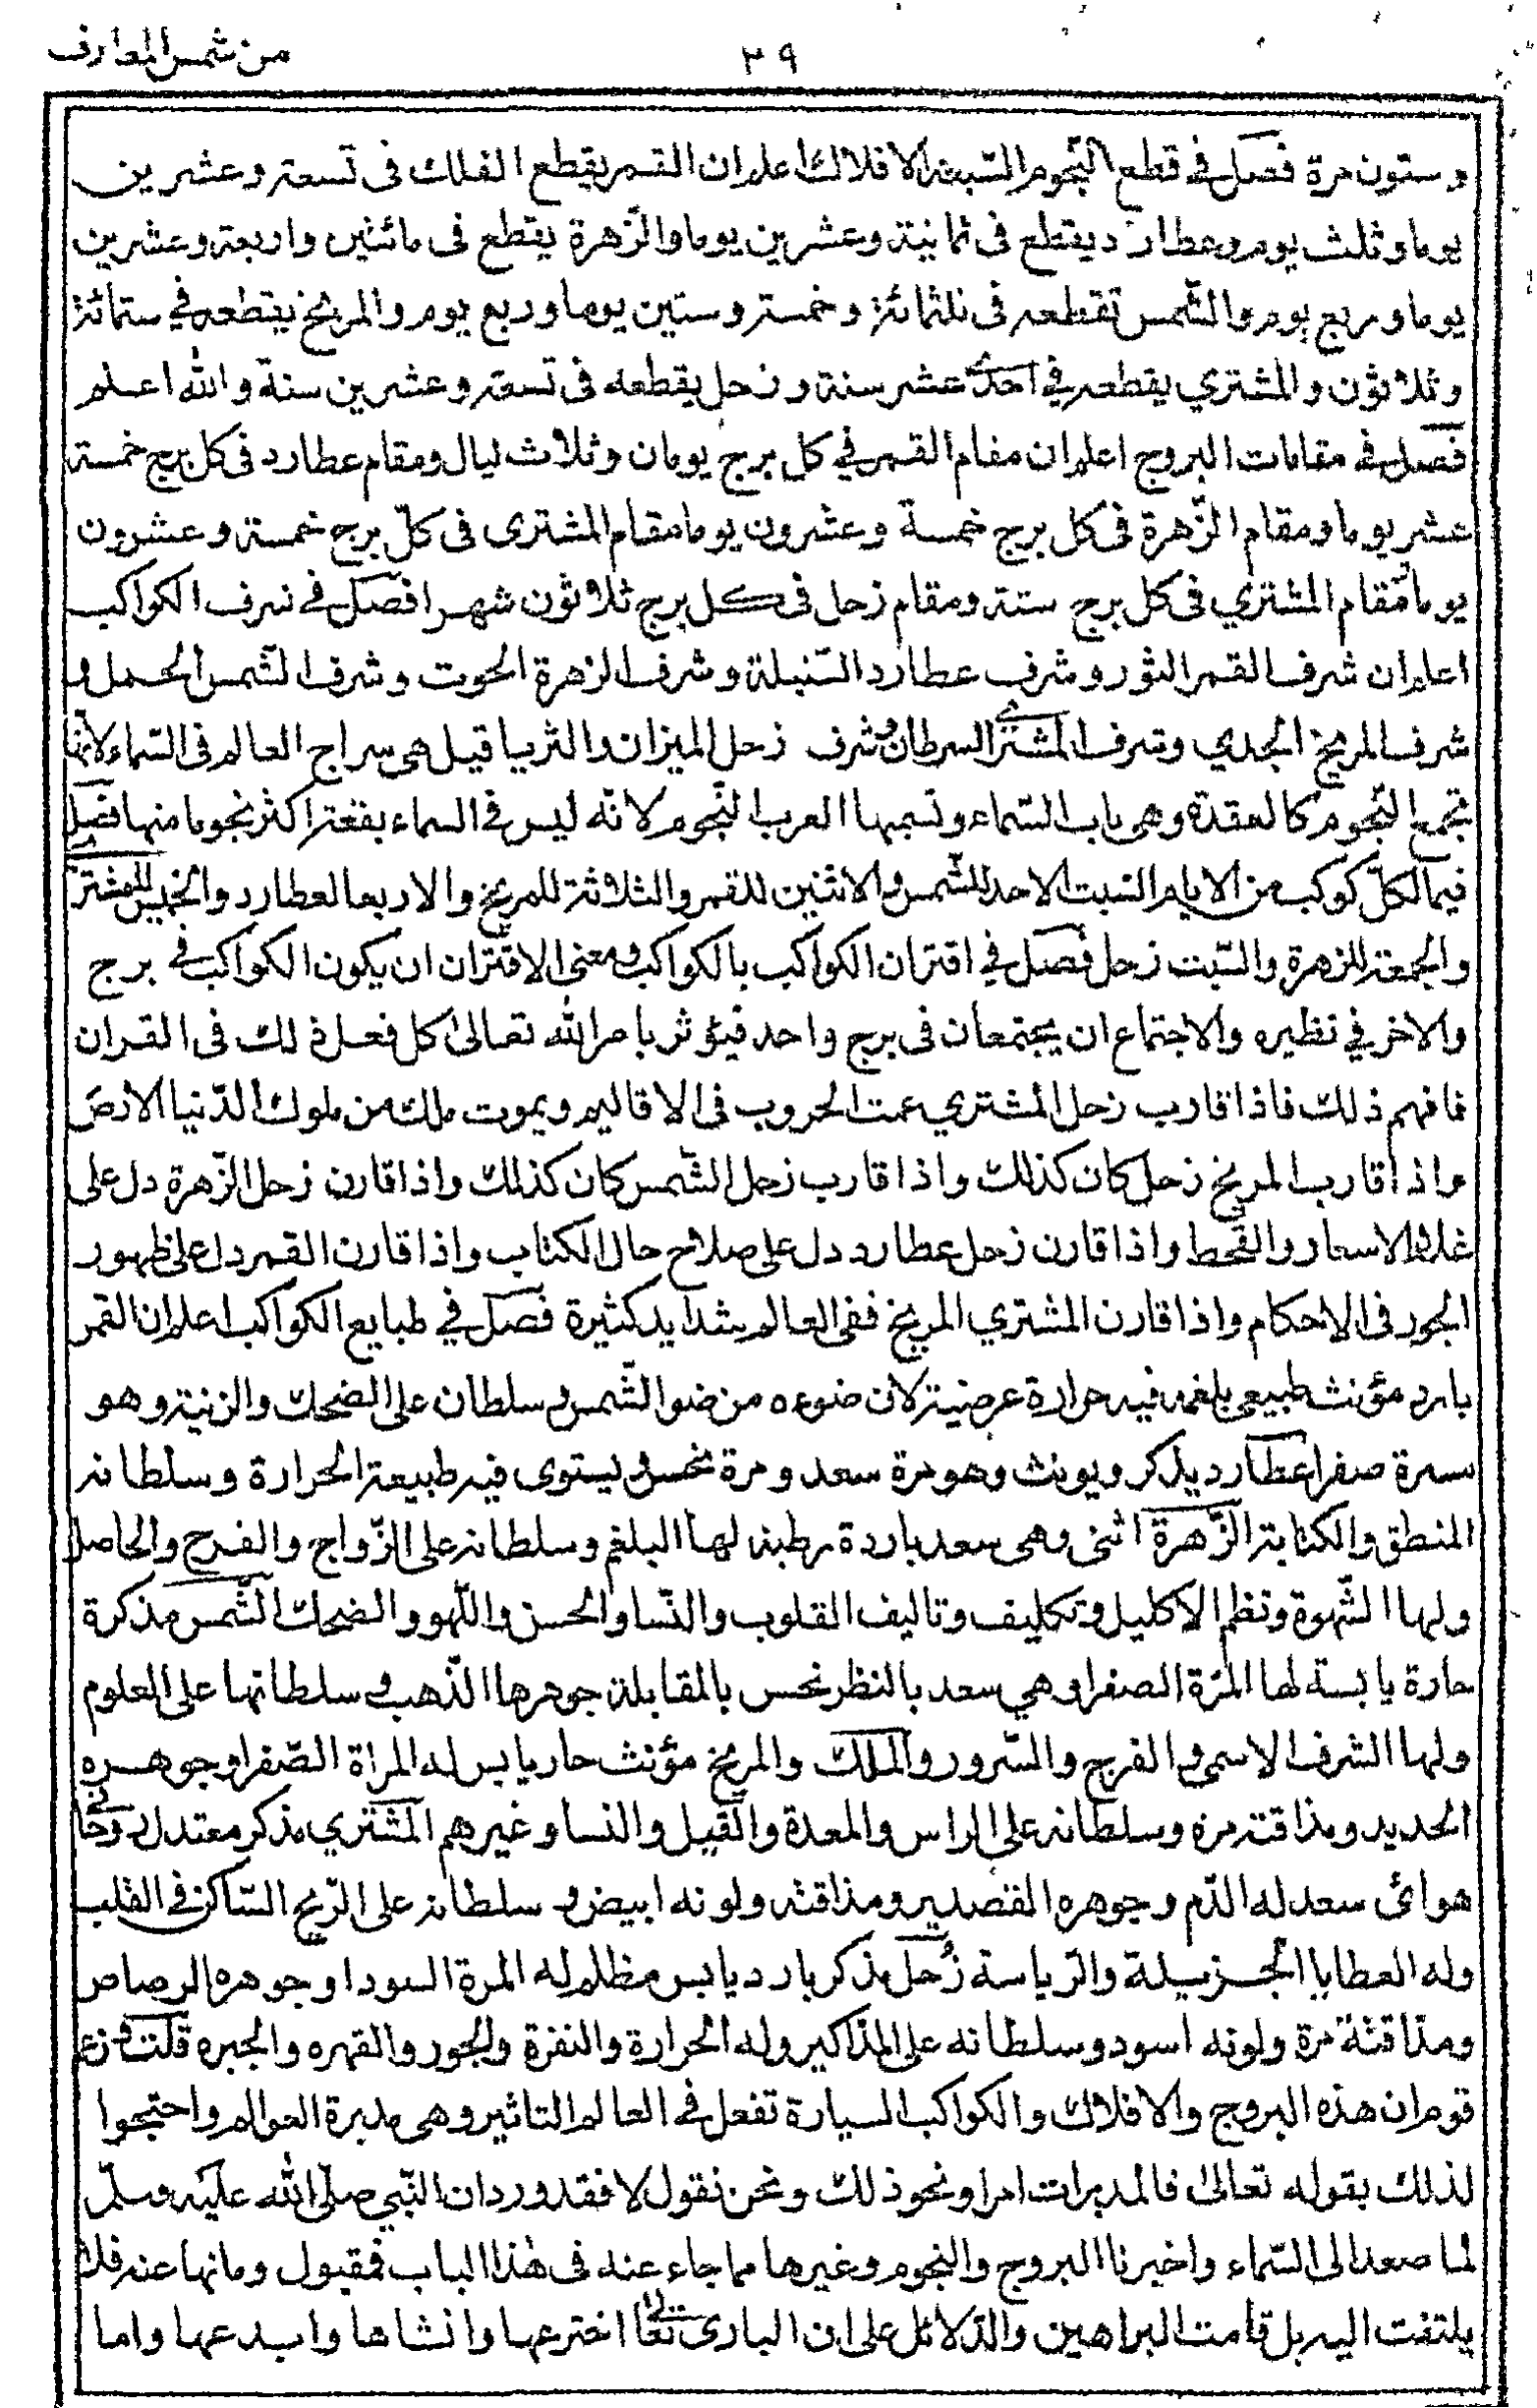 من شمس المعارف
٣٩
وستون مرة فصل في قطع النجوم السبعة الافلاك اعلم ان القمر يقطع الفلك فى تسعة وعشرين
يوما وثلث يوم وعطارد يقطع فى ثمانية وعشرين يوما والزّهرة يقطع فى مائتين واربعة وعشرين
يوما وربع يوم والشّمس تقطعه فى ثلثمائة وخمسة وستين يوما وربع يوم والمريخ يقطعه في ستمائة
وثلاثون والمشتري يقطعه في احد عشر سنة وزحل يقطعه فى تسعة وعشرين سنة والله اعلم
فصل في مقامات البروج اعلم ان مقام القمر في كل برج يومان وثلاث ليال ومقام عطارد فى كل برج خمسة
عشر يوما ومقام الزّهرة فى كل برج خمسة وعشرون يوما مقام المشترى فى كلّ برج خمسة وعشرون
يوما مقام المشتري فى كل برج ستة ومقام زحل فى كل برج ثلاثون شهرا فصل في شرف الكواكب
اعلم ان شرف القمر الثور وشرف عطارد السّنبلة وشرف الزهرة الحوت وشرف الشّمس الحمل و
شرف المريخ الجدي وشرف المشترى السرطان وشرف زحل الميزان والثريا قيل هى سراج العالم فى السّماء لانّها
تجمع النّجوم كالعقدة وهى باب السّماء وتسميها العرب النّجوم لانّه ليس في السماء بقعة اكثر نجوما منها فصل
فيما لكلّ كوكب من الايام السّبت الاحد للشّمس والاثنين للقمر والثلاثة للمريخ والاربعا لعطارد والخميس للمشترى
والجمعة للزهرة والسّبت زحل فصل في اقتران الكواكب بالكواكب ومعنى الاقتران ان يكون الكواكب في برج
والاخر في نظيره والاجتماع ان يجتمعان فى برج واحد فيؤثر بامر الله تعالى كل فعل ذلك فى القران
فافهم ذلك فاذا قارب زحل المشتري عمت الحروب فى الاقاليم ويموت ملك من ملوك الدّنيا الارض
واذا قارب المريخ زحل كان كذلك واذا قارب زحل الشّمس كان كذلك واذا قارن زحل الزّهرة دل على
غلاء الاسعار والقحط واذا قارن زحل عطارد دل على صلاح حال الكتاب واذا قارن القمر دل على ظهور
الجور فى الاحكام واذا قارن المشتري المريخ ففى العالم شدايد كثيرة فصل في طبايع الكواكب اعلم ان القمر
بارد مؤنث طبيعى بلغمه فيه حرارة عرضية لان ضوءه من ضوالشّمس وسلطان على الضحك والزنية وهو
صفرا عطارد يذكر ويونث وهو مرة سعد ومرة نحس ويستوى فيه طبيعة الحرارة وسلطانه
المنطق والكتابة الزّهرة انثى وهى سعد باردة رطبة لها البلغم وسلطانه على الزّواج والفرح والحاصل
ولها الشّهوة ونظم الاكليل وتكليف وتاليف القلوب والنّسا والحسن واللّهو والضحك الشّمس مذكرة
حارة يابسة لها المرّة الصفرا وهي سعد بالنظر نحس بالمقابلة جوهرها الذّهب وسلطانها على العلوم
ولها الشرف الاسمى والفرح والسّرور والملك والمريخ مؤنث حار يابس له المراة الصّفرا وجوهره
الحديد ومذاقته مرة وسلطانه على الراس والمعدة والقبل والنسا وغيرهم المشتري مذكر معتدل
هوائى سعد له الدّم وجوهره القصدير ومذاقته ولونه ابيض و سلطانه على الرّيح السّاكن في القلب
وله العطايا الجزيلة والرّياسة زُحل مذكر بارد يابس مظلم له المرة السودا وجوهره الرصاص
ومذاقتة مرة ولونه اسود وسلطانه على المذاكير وله الحرارة والنفرة والجور والقهره والجبره قلت وزعم
قوم ان هذه البروج والافلاك والكواكب السيارة تفعل في العالم التاثير وهى مدبرة العوالم واحتجوا
لذلك بقوله تعالى فالمدبرات امرا ونحو ذلك ونحن نقول لا فقد ورد ان النّبي صلّى الله عليه وسلّم
لما صعد الى السّماء واخبرنا البروج والنجوم وغيرها مما جاء عنه فى هذا الباب فمقبول ومانها عنه فلا
يلتفت اليه بل قامت البراهين والدّلائل على ان البارى تعالى اخترعها وانشاها وابدعها واما